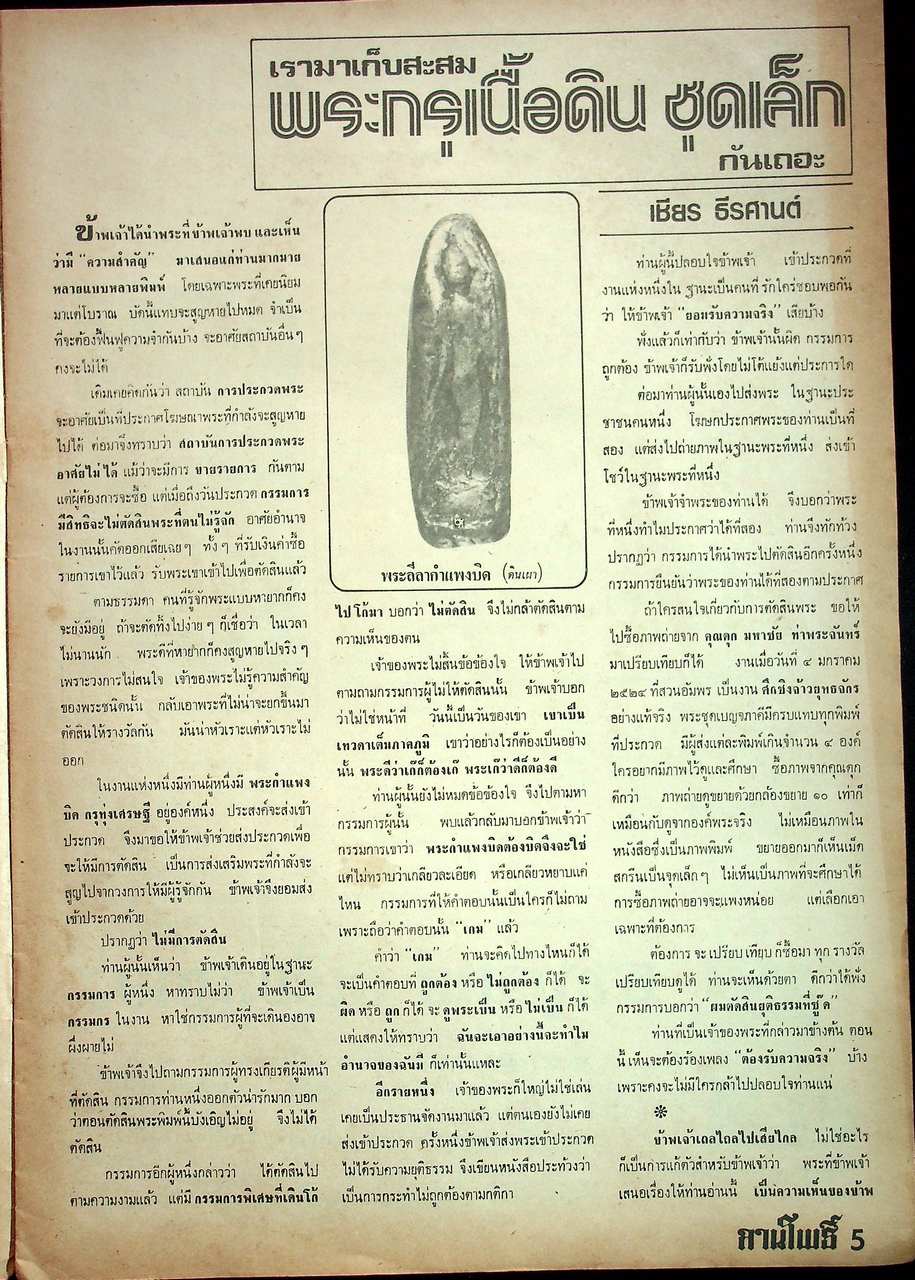 เรามาเก็บสะสม
พระกรุเนื้อดิน ชุดเล็ก
กันเถอะ
เชียร ธีรศานต์
ข้าพเจ้าได้นำพระที่ข้าพเจ้าพบ และเห็น
ว่ามี "ความสำคัญ" มาเสนอแก่ท่านมากมาย
หลายแบบหลายพิมพ์ โดยเฉพาะพระที่เคยนิยม
มาแต่โบราณ บัดนี้แทบจะสูญหายไปหมด จำเป็น
ที่จะต้องฟื้นฟูความจำกันบ้าง จะอาศัยสถาบันอื่นๆ
คงจะไม่ได้
เดิมเคยคิดกันว่า สถาบัน การประกวดพระ
จะอาศัยเป็นที่ประกาศโฆษณาพระที่กำลังจะสูญหาย
ไปได้ ต่อมาจึงทราบว่า สถาบันการประกวดพระ
อาศัยไม่ได้ แม้ว่าจะมีการ ขายรายการ กันตาม
แต่ผู้ต้องการจะซื้อ แต่เมื่อถึงวันประกวด กรรมการ
มีสิทธิจะไม่ตัดสินพระที่ตนไม่รู้จัก อาศัยอำนาจ
ในงานนั้นคัดออกเสียเฉยๆ ทั้งๆ ที่รับเงินค่าซื้อ
รายการเขาไว้แล้ว รับพระเขาเข้าไปเพื่อตัดสินแล้ว
ตามธรรมดา คนที่รู้จักพระแบบหายากก็คง
จะยังมีอยู่ ถ้าจะคัดทิ้งไปง่ายๆ ก็เชื่อว่า ในเวลา
ไม่นานนัก พระดีที่หายากก็คงสูญหายไปจริงๆ
เพราะวงการไม่สนใจ เจ้าของพระไม่รู้ความสำคัญ
ของพระชนิดนั้น กลับเอาพระที่ไม่น่าจะยกขึ้นมา
ตัดสินให้รางวัลกัน มันน่าหัวเราะแต่หัวเราะไม่
ออก
ในงานแห่งหนึ่งมีท่านผู้หนึ่งมี พระกำแพง
บิด กรุทุ่งเศรษฐี อยู่องค์หนึ่ง ประสงค์จะส่งเข้า
ประกวด จึงมาขอให้ข้าพเจ้าช่วยส่งประกวดเพื่อ
จะให้มีการตัดสิน เป็นการส่งเสริมพระที่กำลังจะ
สูญไปจากวงการให้มีผู้รู้จักกัน ข้าพเจ้าจึงยอมส่ง
เข้าประกวดด้วย
ปรากฏว่า ไม่มีการตัดสิน
ท่านผู้นั้นเห็นว่า ข้าพเจ้าเดินอยู่ในฐานะ
กรรมการ ผู้หนึ่ง หาทราบไม่ว่า ข้าพเจ้าเป็น
กรรมกร ในงาน หาใช่กรรมการผู้ที่จะเดินองอาจ
ผึ่งผายไม่
ข้าพเจ้าจึงไปถามกรรมการผู้ทรงเกียรติผู้มีหน้า
ที่ตัดสิน กรรมการท่านหนึ่งออกตัวน่ารักมาก บอก
ว่าตอนตัดสินพระพิมพ์นั้นบังเอิญไม่อยู่ จึงไม่ได้
ตัดสิน
กรรมการอีกผู้หนึ่งกล่าวว่า ได้ตัดสินไป
ตามความงามแล้ว แต่มี กรรมการพิเศษที่เดินโก้
พระลีลากำแพงบิด (ดินเผา)
ไปโก้มา บอกว่า ไม่ตัดสิน จึงไม่กล้าตัดสินตาม
ความเห็นของตน
เจ้าของพระไม่สิ้นข้อข้องใจ ให้ข้าพเจ้าไป
ตามถามกรรมการผู้ไม่ให้ตัดสินนั้น ข้าพเจ้าบอก
ว่าไม่ใช่หน้าที่ วันนี้เป็นวันของเขา เขาเป็น
เทวดาเต็มภาคภูมิ เขาว่าอย่างไรก็ต้องเป็นอย่าง
นั้น พระดีว่าเก๊ก็ต้องเก๊ พระเก๊ว่าดีก็ต้องดี
ท่านผู้นั้นยังไม่หมดข้อข้องใจ จึงไปตามหา
กรรมการผู้นั้น พบแล้วกลับมาบอกข้าพเจ้าว่า
กรรมการเขาว่า พระกำแพงบิดต้องบิดจึงจะใช่
แต่ไม่ทราบว่าเกลียวละเอียด หรือเกลียวหยาบแค่
ไหน กรรมการที่ให้คำตอบนั้นเป็นใครก็ไม่ถาม
เพราะถือว่าคำตอบนั้น "เกม" แล้ว
คำว่า "เกม" ท่านจะคิดไปทางไหนก็ได้
จะเป็นคำตอบที่ ถูกต้อง หรือ ไม่ถูกต้อง ก็ได้ จะ
ผิด หรือ ถูก ก็ได้ จะ ดูพระเป็น หรือ ไม่เป็น ก็ได้
แต่แสดงให้ทราบว่า ฉันจะเอาอย่างนี้จะทำไม
อำนาจของฉันมี ก็เท่านั้นแหละ
อีกรายหนึ่ง เจ้าของพระก็ใหญ่ไม่ใช่เล่น
เคยเป็นประธานจัดงานมาแล้ว แต่ตนเองยังไม่เคย
ส่งเข้าประกวด ครั้งหนึ่งข้าพเจ้าส่งพระเข้าประกวด
ไม่ได้รับความยุติธรรม จึงเขียนหนังสือประท้วงว่า
เป็นการกระทำไม่ถูกต้องตามกติกา
ท่านผู้นี้ปลอบใจข้าพเจ้า เข้าประกวดที่
งานแห่งหนึ่งใน ฐานะเป็นคนที่ รักใคร่ชอบพอกัน
ว่า ให้ข้าพเจ้า "ยอมรับความจริง" เสียบ้าง
ฟังแล้วก็เท่ากับว่า ข้าพเจ้านั้นผิด กรรมการ
ถูกต้อง ข้าพเจ้าก็รับฟังโดยไม่โต้แย้งแต่ประการใด
ต่อมาท่านผู้นั้นเองไปส่งพระ ในฐานะประ
ชาชนคนหนึ่ง โฆษกประกาศพระของท่านเป็นที่
สอง แต่ส่งไปถ่ายภาพในฐานะพระที่หนึ่ง ส่งเข้า
โชว์ในฐานะพระที่หนึ่ง
ข้าพเจ้าจำพระของท่านได้ จึงบอกว่าพระ
ที่หนึ่งทำไมประกาศว่าได้ที่สอง ท่านจึงทักท้วง
ปรากฏว่า กรรมการได้นำพระไปตัดสินอีกครั้งหนึ่ง
กรรมการยืนยันว่าพระของท่านได้ที่สองตามประกาศ
ถ้าใครสนใจเกี่ยวกับการตัดสินพระ ขอให้
ไปซื้อภาพถ่ายจาก คุณดุก มหาชัย ท่าพระจันทร์
มาเปรียบเทียบก็ได้ งานเมื่อวันที่ ๔ มกราคม
๒๕๒๔ ที่สวนอัมพร เป็นงาน ศึกชิงจ้าวยุทธจักร
อย่างแท้จริง พระชุดเบญจภาคีมีครบแทบทุกพิมพ์
ที่ประกวด มีผู้ส่งแต่ละพิมพ์เกินจำนวน ๔ องค์
ใครอยากมีภาพไว้ดูและศึกษา ซื้อภาพจากคุณดุก
ดีกว่า ภาพถ่ายดูขยายด้วยกล้องขยาย ๑๐ เท่าก็
เหมือนกับดูจากองค์พระจริง ไม่เหมือนภาพใน
หนังสือซึ่งเป็นภาพพิมพ์ ขยายออกมาก็เห็นเม็ด
สกรีนเป็นจุดเล็กๆ ไม่เห็นเป็นภาพที่จะศึกษาได้
การซื้อภาพถ่ายอาจจะแพงหน่อย แต่เลือกเอา
เฉพาะที่ต้องการ
ต้องการ จะ เปรียบ เทียบ ก็ซื้อมา ทุก รางวัล
เปรียบเทียบดูได้ ท่านจะเห็นด้วยตา ดีกว่าได้ฟัง
กรรมการบอกว่า "ผมตัดสินยุติธรรมที่ซู๊ด"
ท่านที่เป็นเจ้าของพระที่กล่าวมาข้างต้น ตอน
นี้ เห็นจะต้องร้องเพลง "ต้องรับความจริง" บ้าง
เพราะคงจะไม่มีใครกล้าไปปลอบใจท่านแน่
*
ข้าพเจ้าเถลไถลไปเสียไกล ไม่ใช่อะไร
ก็เป็นการแก้ตัวสำหรับข้าพเจ้าว่า พระที่ข้าพเจ้า
เสนอเรื่องให้ท่านอ่านนี้ เป็นความเห็นของข้าพ
ลานโพธิ์ 5